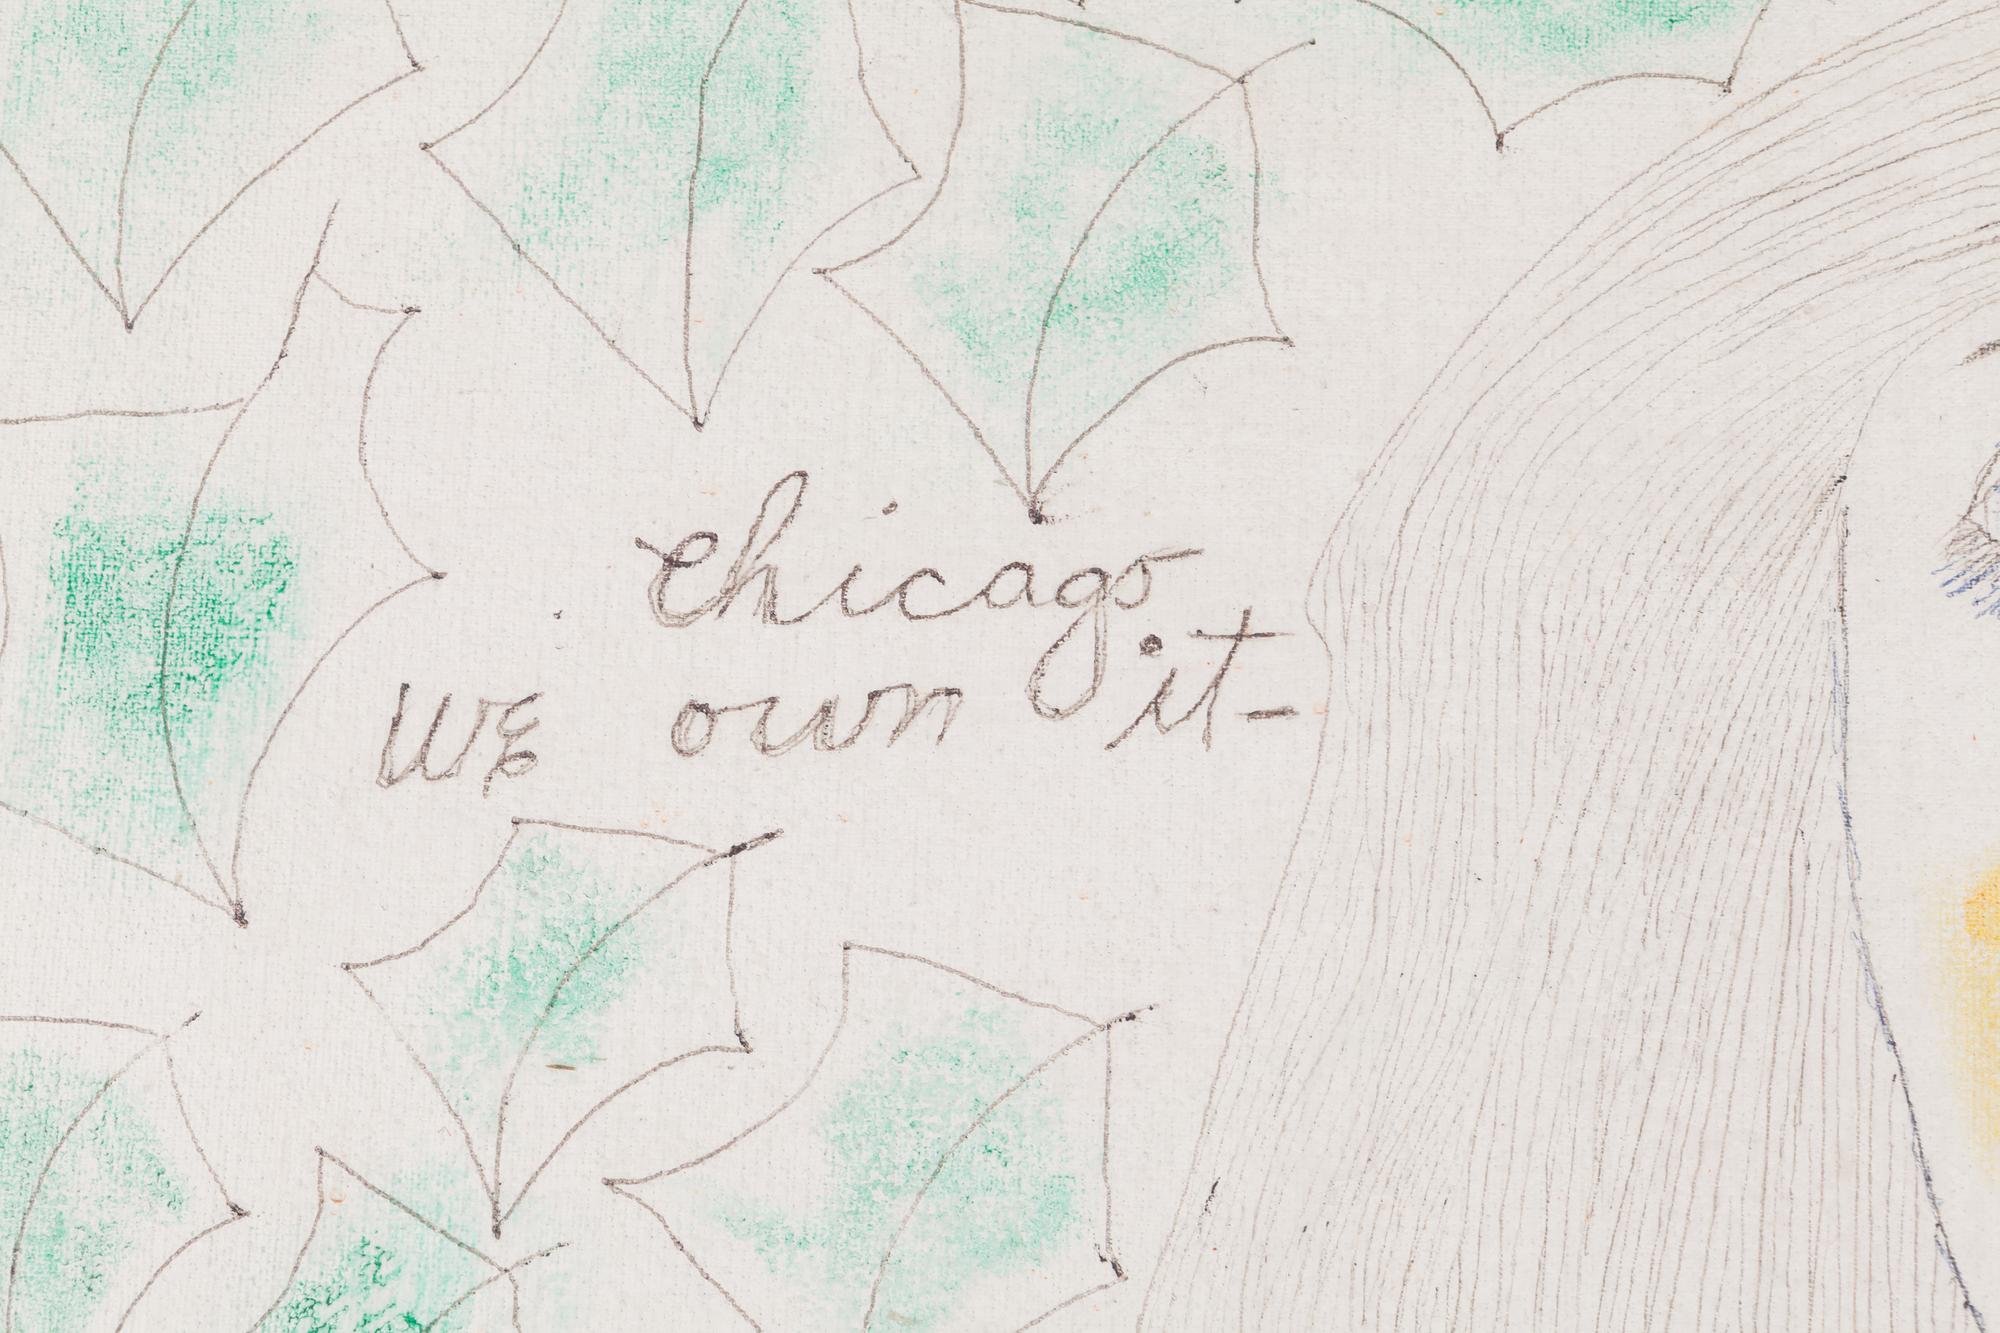 Chicago
We own it-